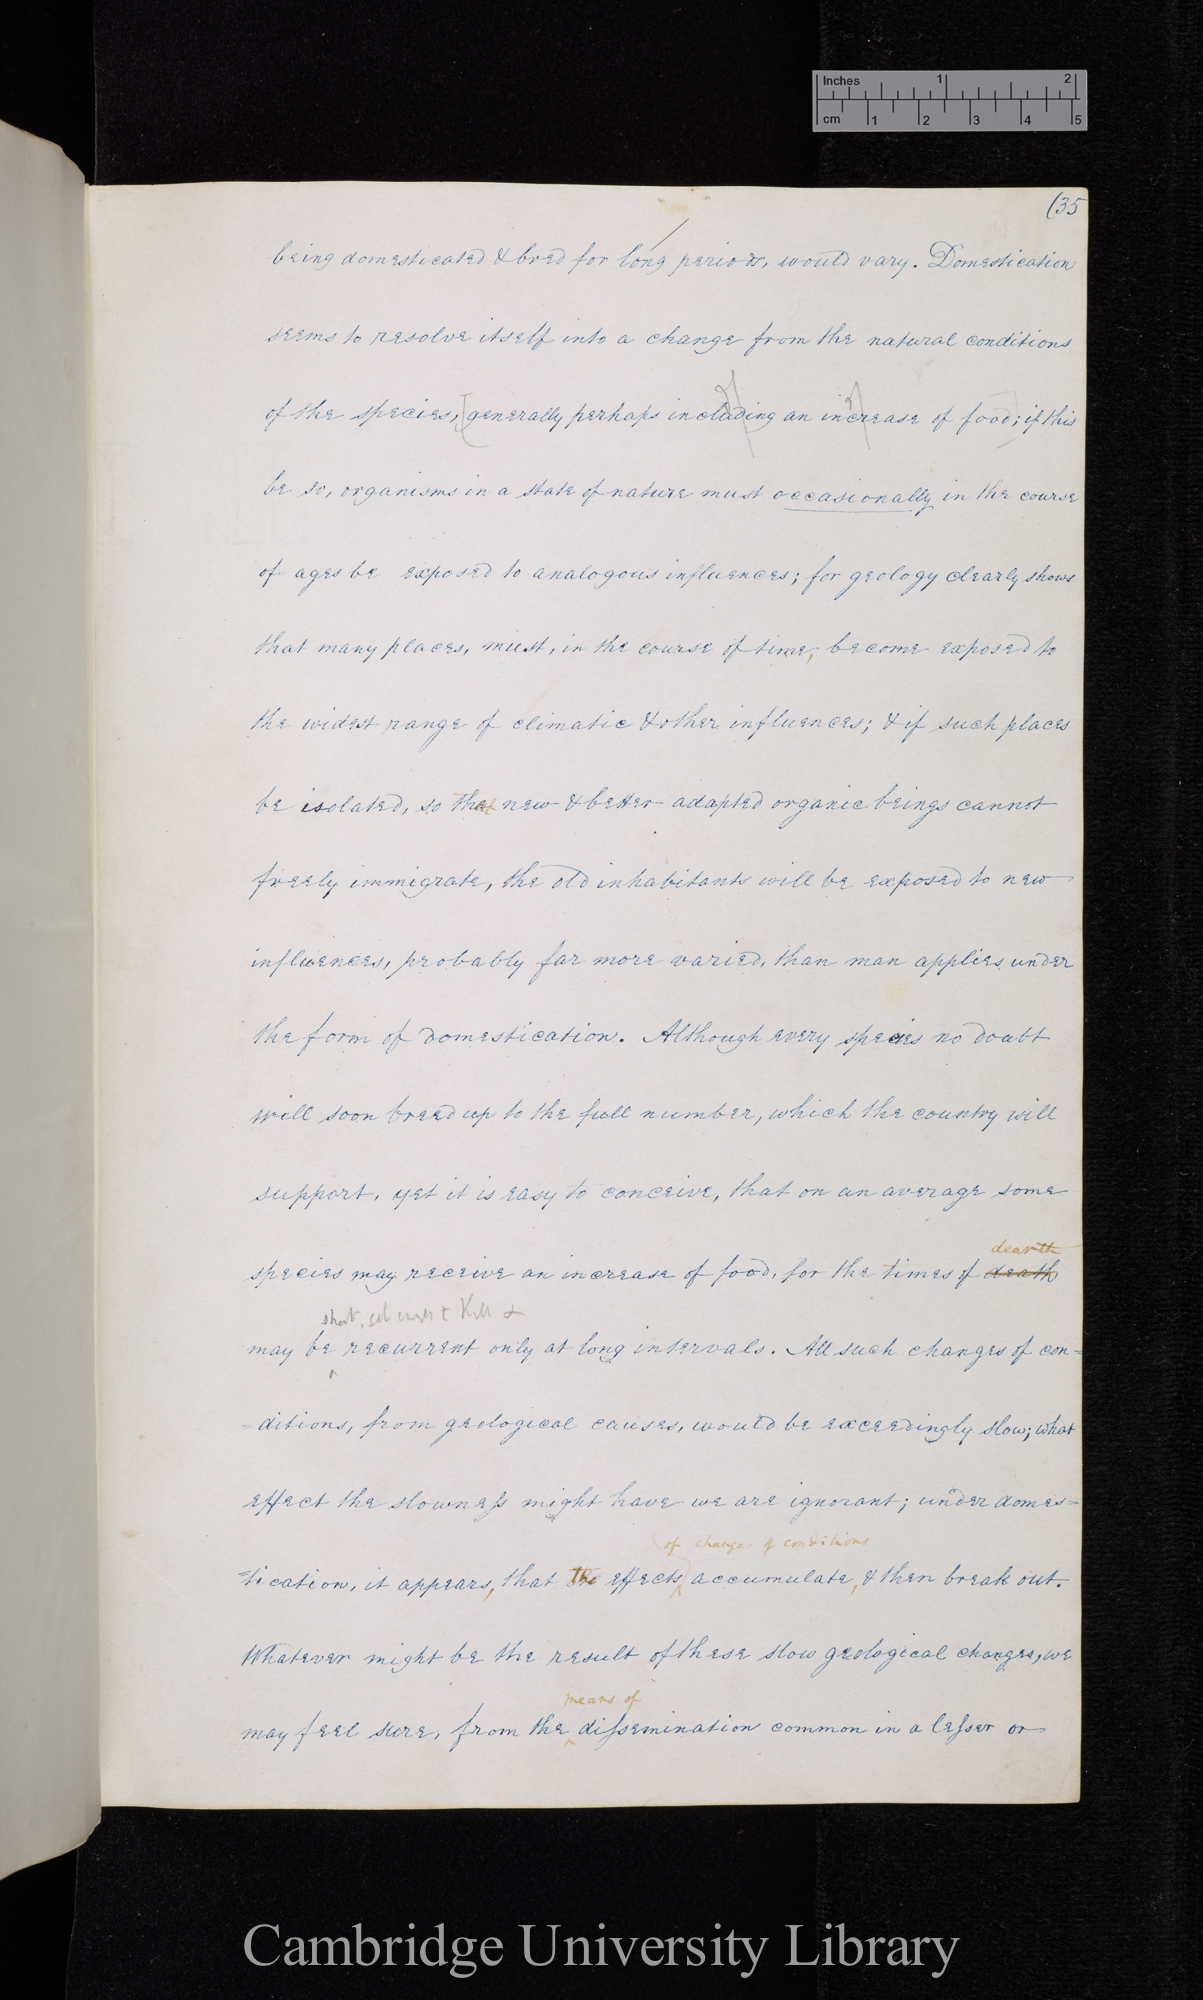 Inches 1 2
cm 1 2 3 4 5
(35
being domesticated & bred for long periods, would vary. Domestication
seems to resolve itself into a change from the natural conditions
of the species, [generally perhaps including an increase of food]; if this
be so, organisms in a state of nature must occasionally in the course
of ages be exposed to analogous influences; for geology clearly shows
that many places, must, in the course of time, become exposed to
the widest range of climatic & other influences; & if such places
be isolated, so that new & better adapted organic beings cannot
freely immigrate, the old inhabitants will be exposed to new
influences, probably far more varied, than man applies under
the form of domestication. Although every species no doubt
will soon breed up to the full number, which the country will
support, yet it is easy to conceive, that on an average some
dearth
species may receive an increase of food, for the times of death
short, & kill &
may be recurrent only at long intervals. All such changes of con=
=ditions, from geological causes, would be exceedingly slow; what
effect the slowness might have we are ignorant; under domes=
of change of conditions
=tication, it appears, that the effects accumulate, & then break out.
Whatever might be the result of these slow geological changes, we
means of
may feel sure, from the dissemination common in a lesser or
Cambridge University Library